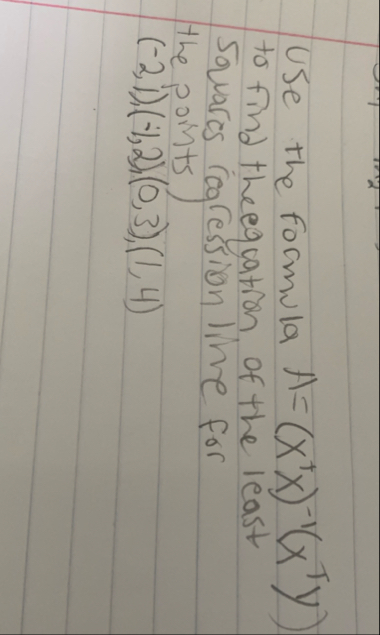 Use the formula A=(X^TX)^-1(X^Ty)
to find the equation of the least
squares regression line for
the points
(-2,1),(-1,2),(0,3),(1,4)